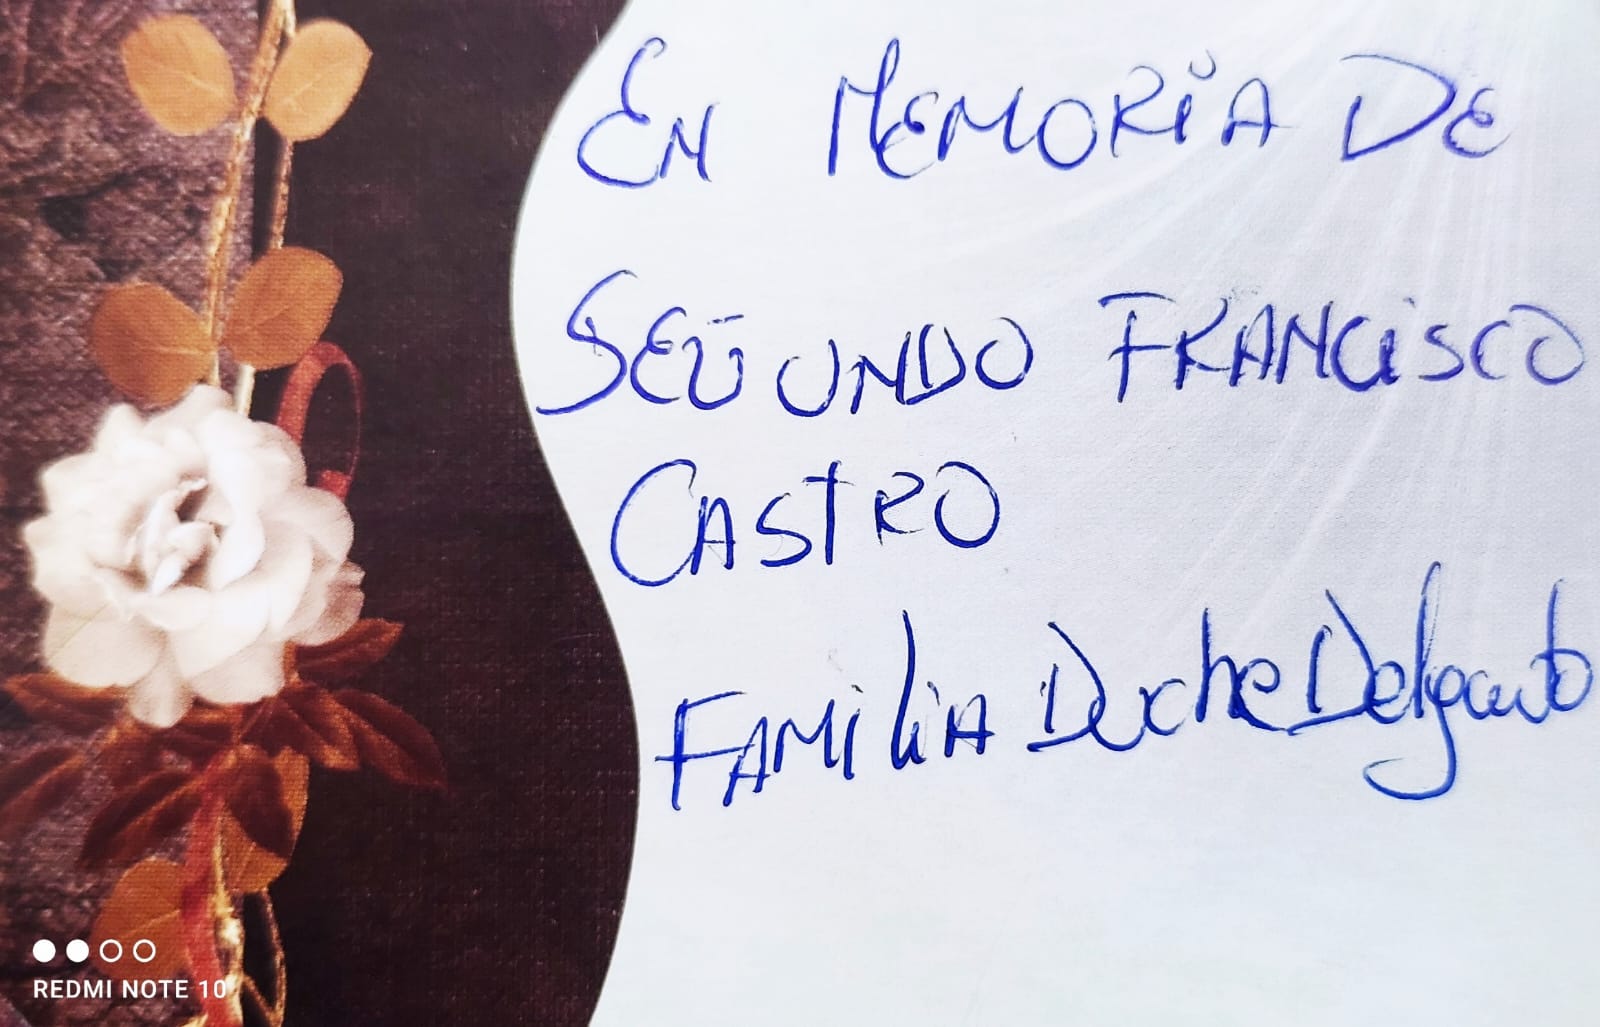 EN MEMORIA DE
SEGUNDO FRANCISCO
CASTRO
FAMILIA Duche Delgado
REDMI NOTE 10